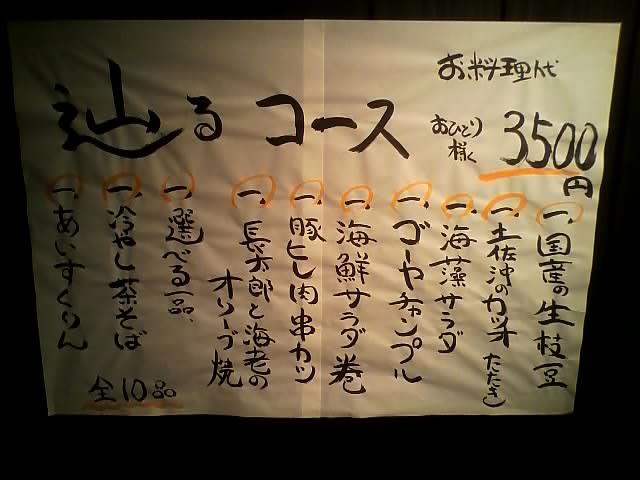 辿るコース
お料理代
おひとり様
3500円
一、国産の生枝豆
一、土佐沖のカツオたたき
一、海藻サラダ
一、ゴーヤチャンプル
一、海鮮サラダ巻
一、豚ヒレ肉串カツ
一、長太郎と海老の
オリーブ焼
一、選べる一品
一、冷やし茶そば
一、あいすくりん
全10品